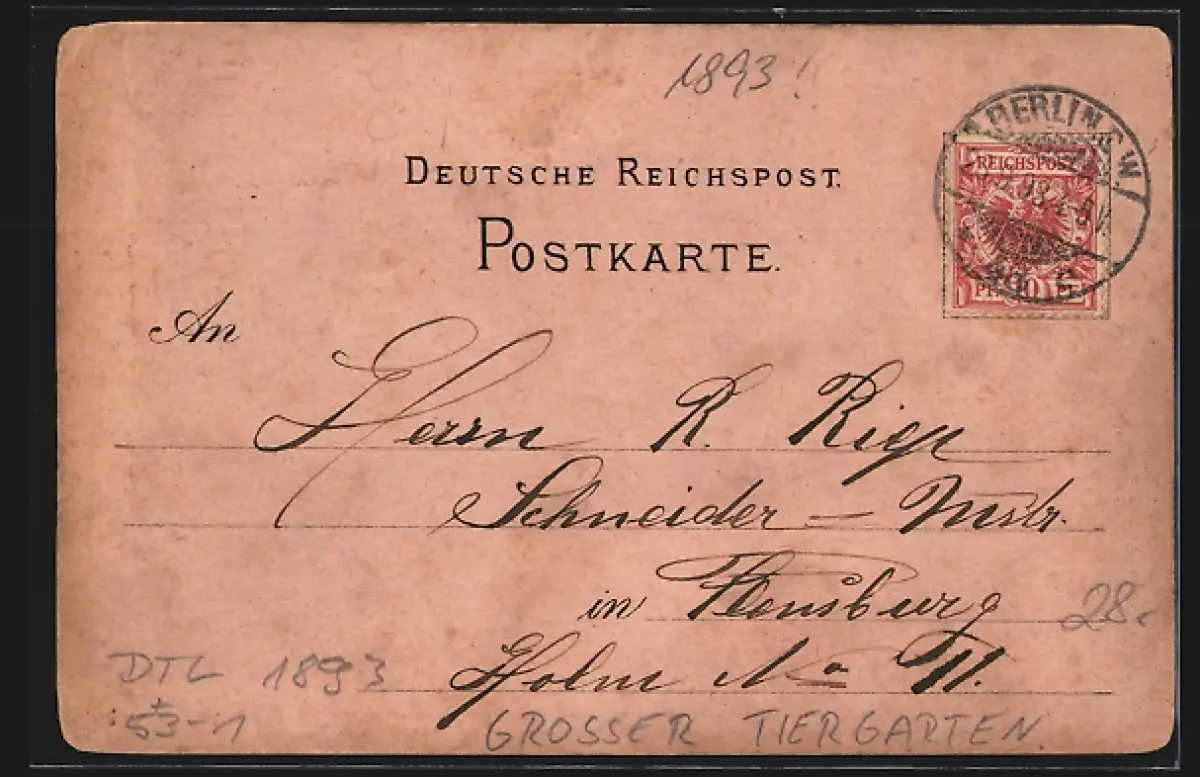 1893!
DEUTSCHE REICHSPOST.
POSTKARTE.
BERLIN S.W.
REICHSPOST
An
Herrn R.
Schneider - Mstr.
in Flensburg
28.-
Holm No
DTL 1893
53-1
GROSSER TIERGARTEN.